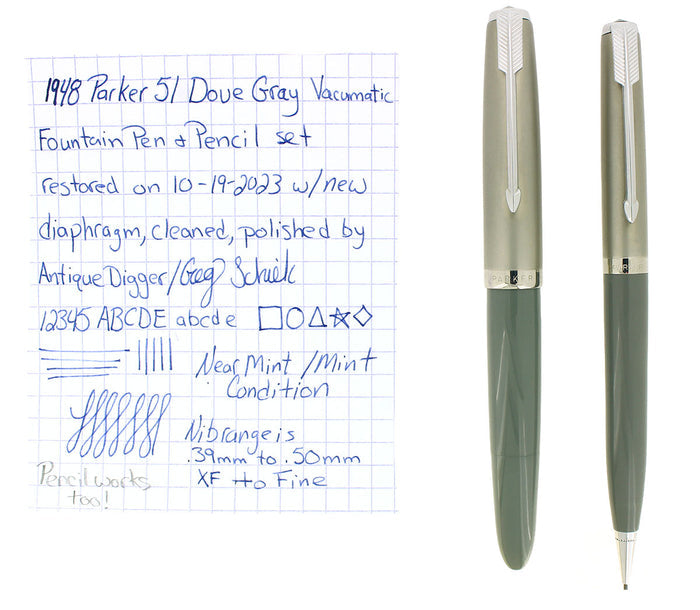 1948 Parker 51 Dove Gray Vacumatic
Fountain Pen & Pencil set
restored on 10-19-2023 w/new
diaphragm, cleaned, polished by
Antique Digger/Greg Schiek
12345 ABCDE abcde
Near Mint / Mint
Condition
Nib range is
.39mm to .50mm
XF to Fine
Pencil works,
too!
PARKER